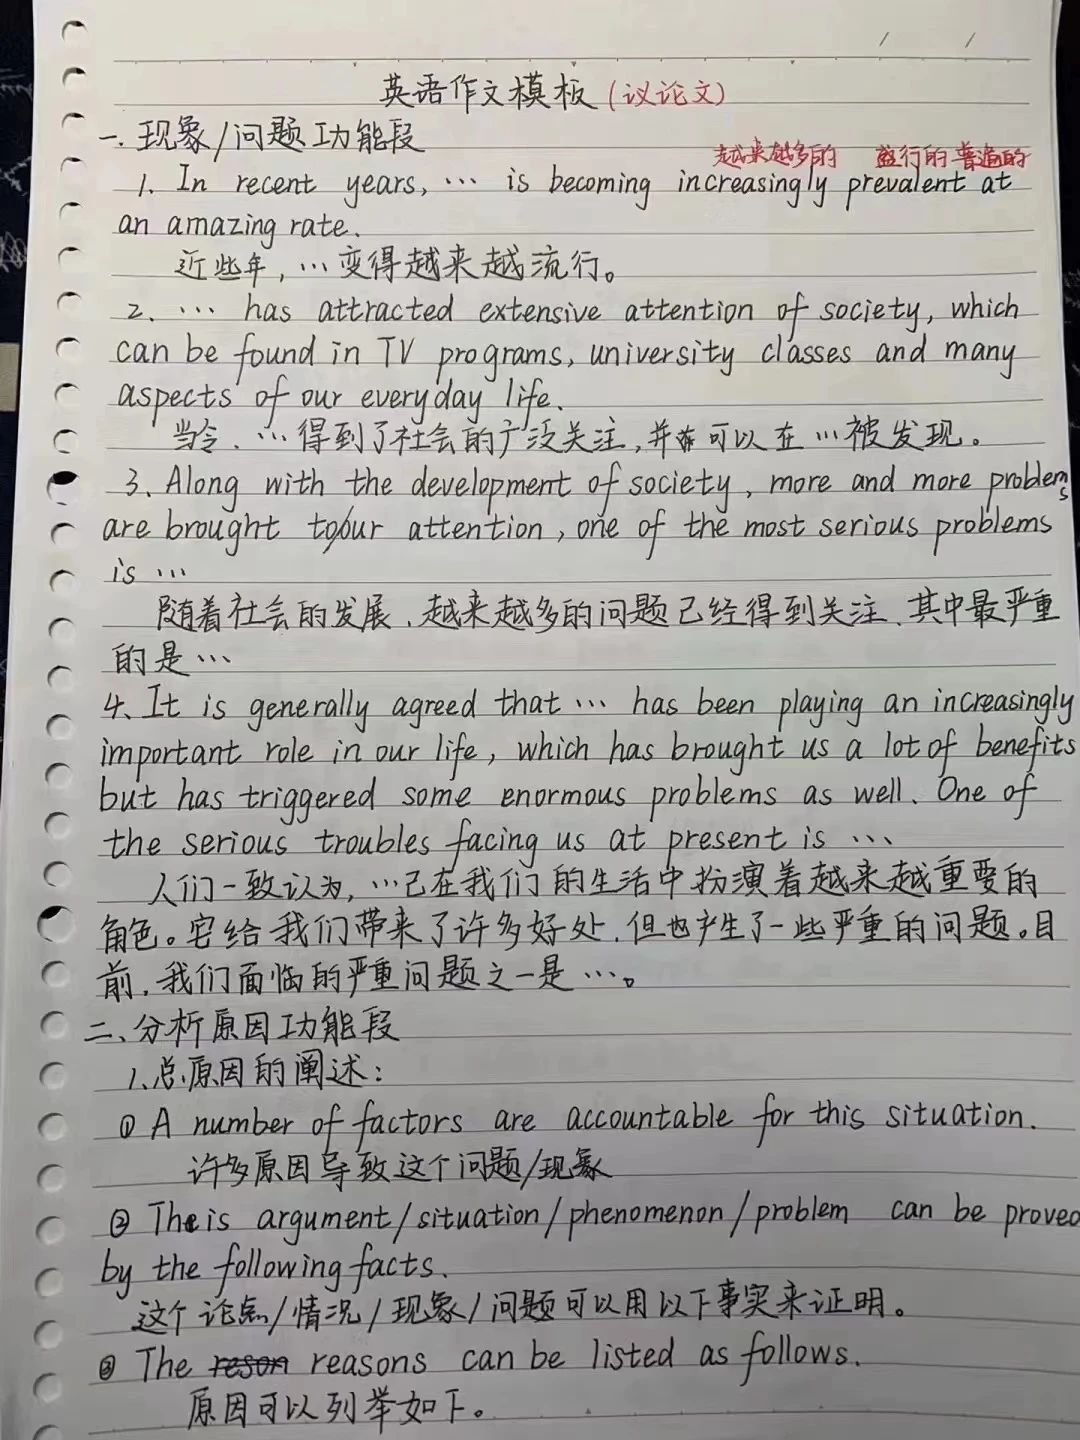 英语作文模板(议论文)
一、现象/问题功能段
越来越多的 盛行的 普遍的
1. In recent years, … is becoming increasingly prevalent at
an amazing rate.
近些年, …变得越来越流行。
2. … has attracted extensive attention of society, which
can be found in TV programs, university classes and many
aspects of our everyday life.
当今、…得到了社会的广泛关注,并可以在…被发现。
3. Along with the development of society, more and more problems
are brought to/our attention, one of the most serious problems
is …
随着社会的发展、越来越多的问题已经得到关注、其中最严重
的是…
4. It is generally agreed that … has been playing an increasingly
important role in our life, which has brought us a lot of benefits
but has triggered some enormous problems as well. One of
the serious troubles facing us at present is …
人们一致认为, …已在我们的生活中扮演着越来越重要的
角色。它给我们带来了许多好处、但也产生了一些严重的问题。目
前,我们面临的严重问题之一是…。
二、分析原因功能段
1、总原因的阐述:
① A number of factors are accountable for this situation.
许多原因导致这个问题/现象
② This argument/situation/phenomenon/problem can be proved
by the following facts.
这个论点/情况/现象/问题可以用以下事实来证明。
③ The reson reasons can be listed as follows.
原因可以列举如下。